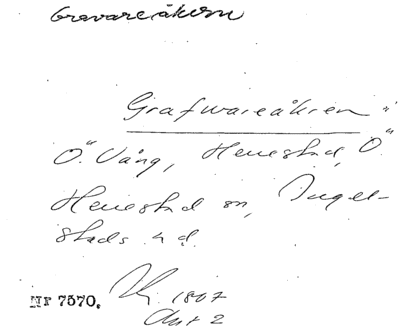 Gravareåkern
Grafwareåkren "
Ö. Vång, Henestad, Ö
Henestad sn, Ingel-
stads hd.
Nr 7570. 1807
Akt 2